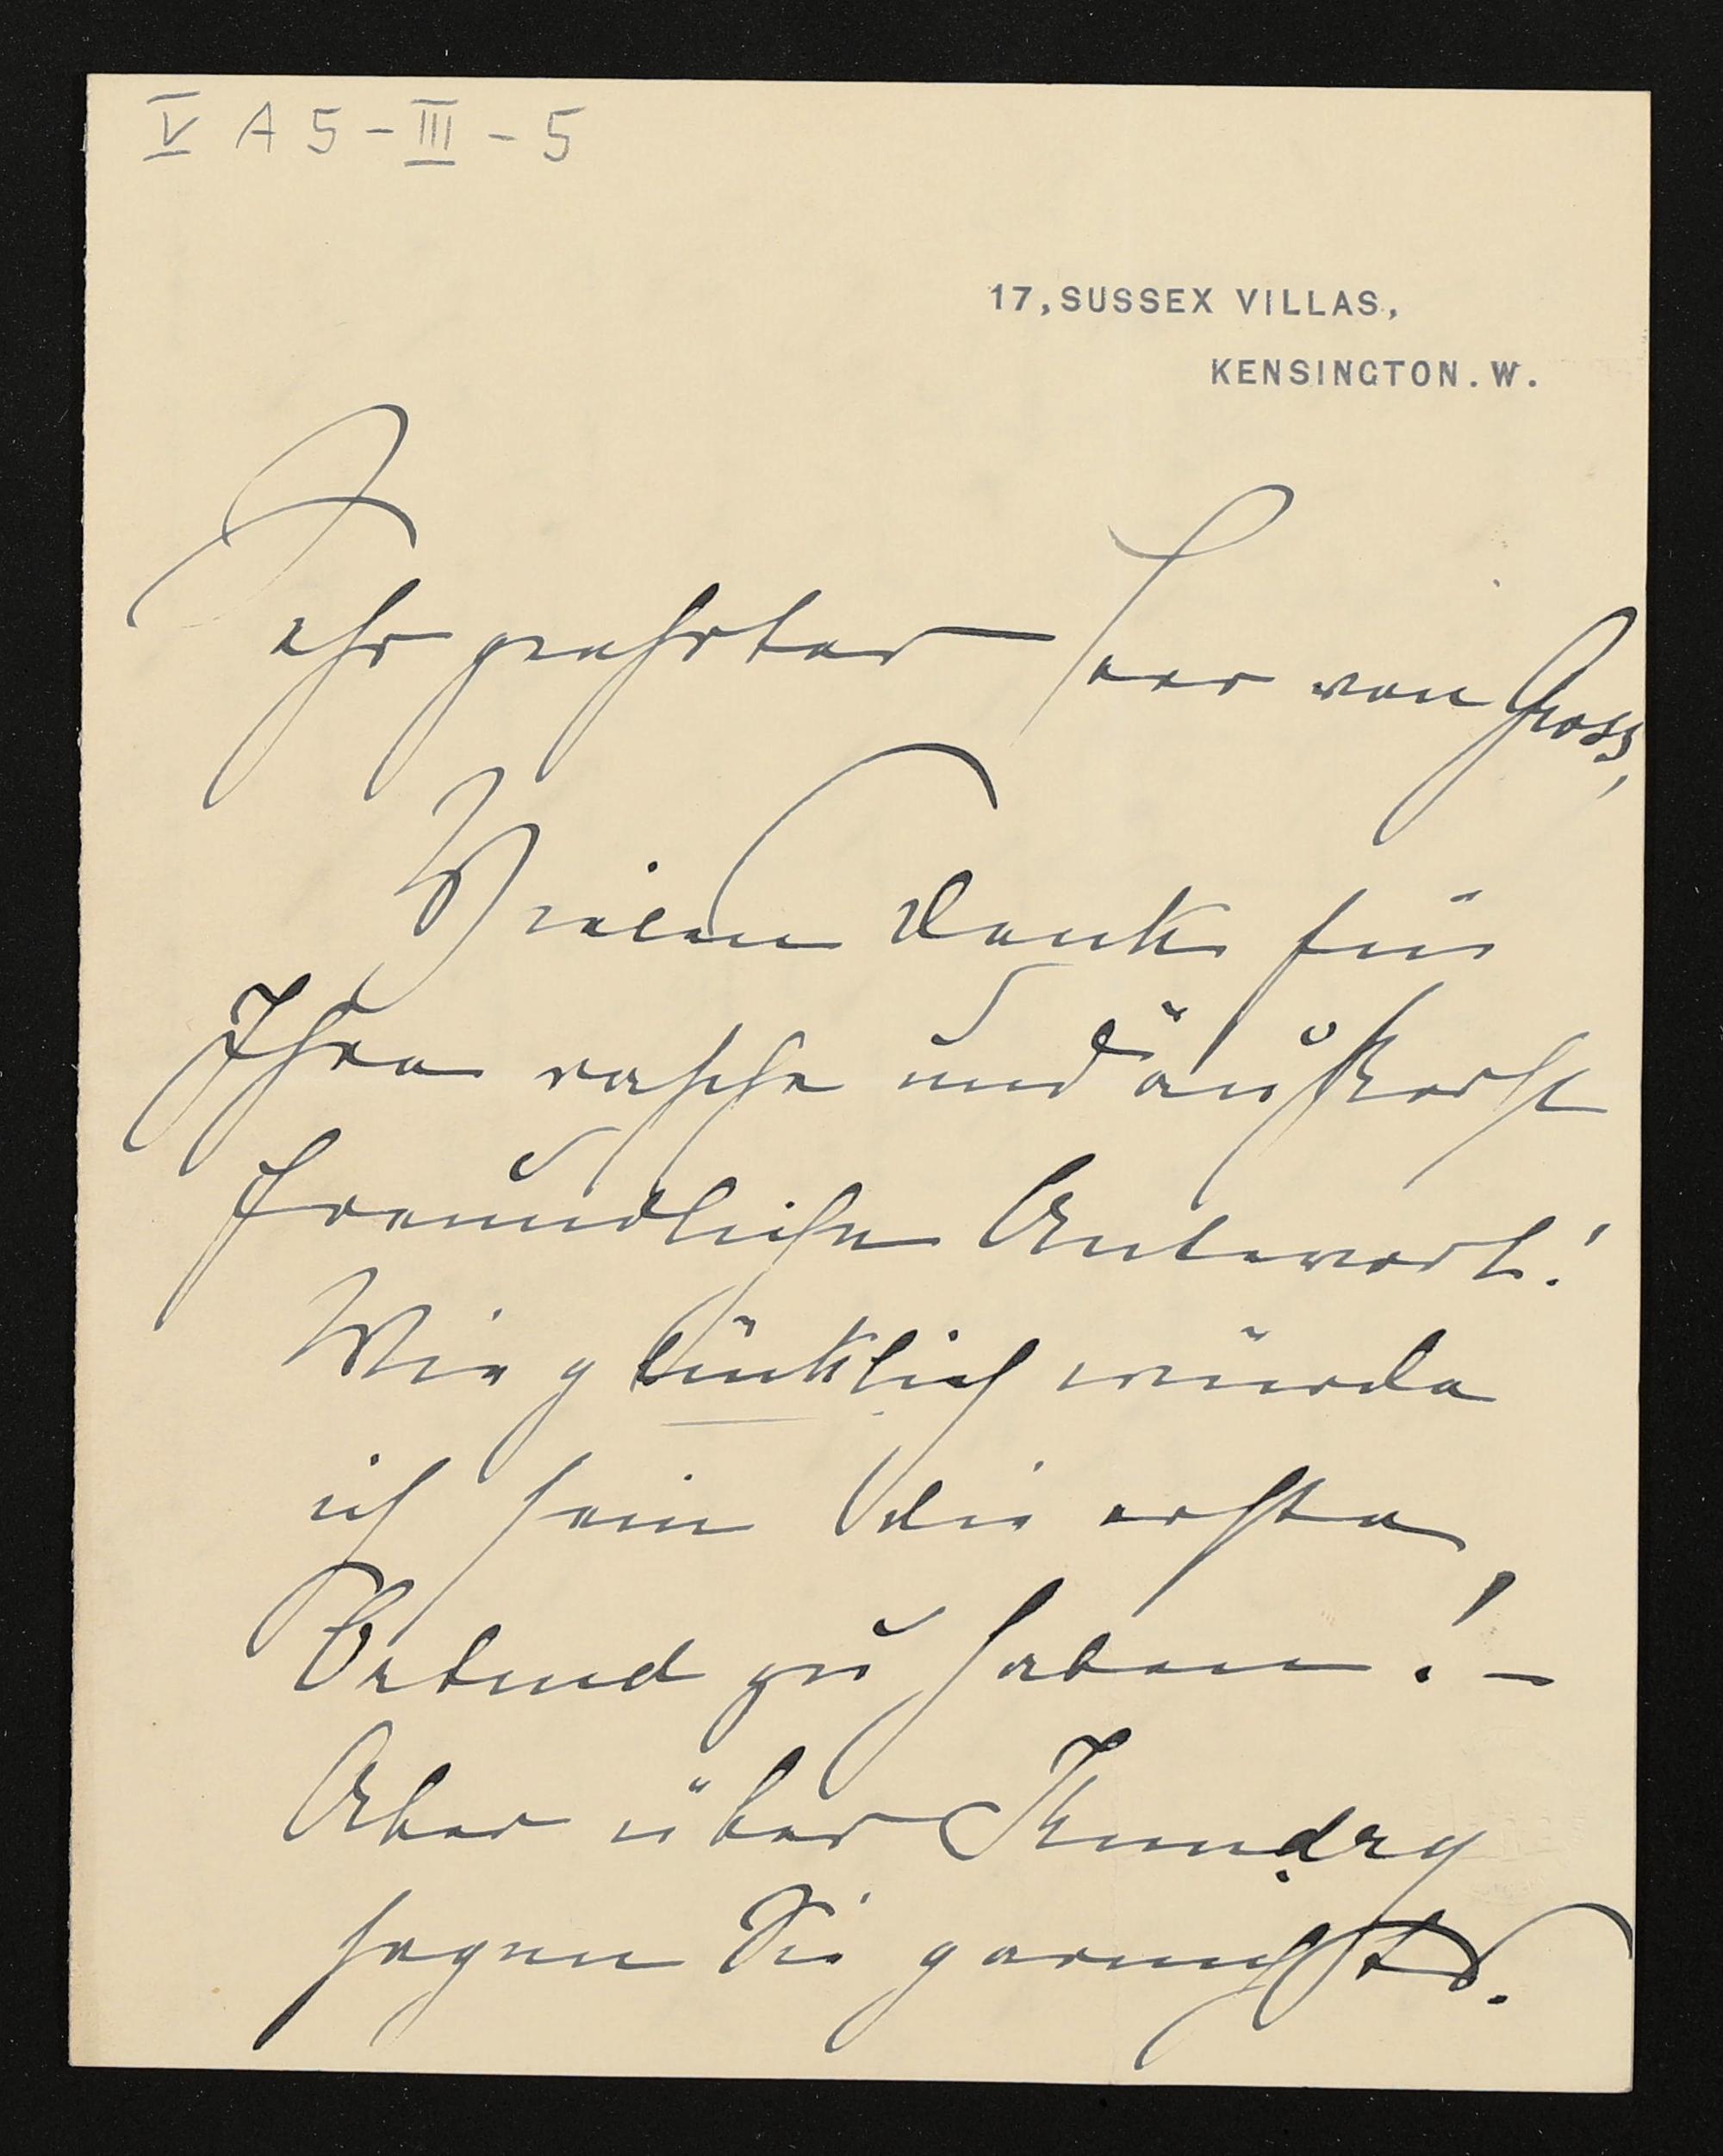 V A 5 - III - 5
17, SUSSEX VILLAS,
KENSINGTON. W.
Sehr geehrter Herr von Gross,
Vielen Dank für
Ihre rasche und äußerst
freundliche Antwort!
Wie glücklich würde
ich sein die erste
Ortrud zu haben! –
Aber über Kundry
sagen Sie garnichts.